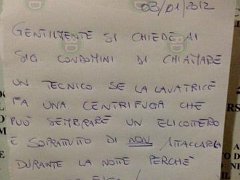 03/01/2012
GENTILMENTE SI CHIEDE AI
SIG CONDOMINI DI CHIAMARE
UN TECNICO SE LA LAVATRICE
FA UNA CENTRIFUGA CHE
PUÒ SEMBRARE UN ELICOTTERO
E SOPRATUTTO DI NON ATTACCARLA
DURANTE LA NOTTE PERCHÈ